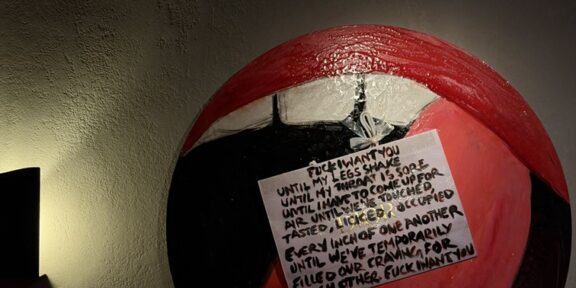 FUCK I WANT YOU
UNTIL MY LEGS SHAKE
UNTIL MY THROAT IS SORE
UNTIL I HAVE TO COME UP FOR
AIR UNTIL WE'VE TOUCHED,
TASTED, LICKED, OCCUPIED
EVERY INCH OF ONE ANOTHER
UNTIL WE'VE TEMPORARILY
FILLED OUR CRAVING, FOR
OTHER FUCK I WANT YOU